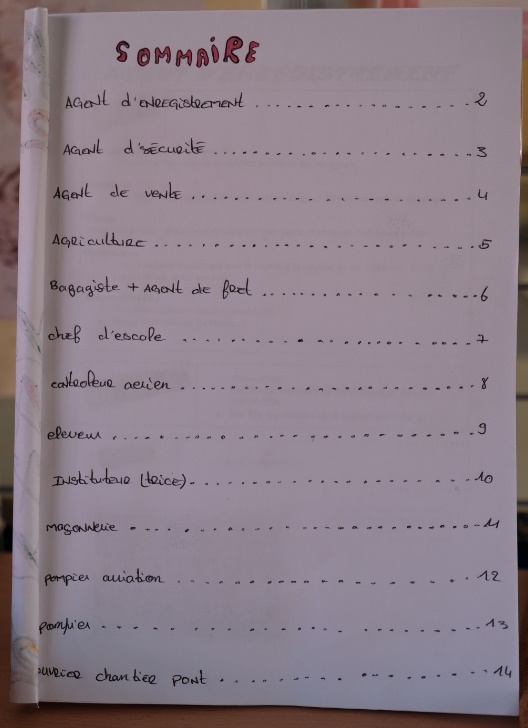 SOMMAIRE
AGENT d'ENREGISTREMENT ................. 2
AGENT d'SÉCURITÉ ................. 3
AGENT de VENTE ................. 4
AGRICULTURE ................. 5
Bagagiste + AGENT de fret ................. 6
chef d'escale ................. 7
controleur aerien ................. 8
eleveur ................. 9
INstituteur (trice) ................. 10
maçonnerie ................. 11
pompier aviation ................. 12
pompier ................. 13
ouvrier chantier PONT ................. 14